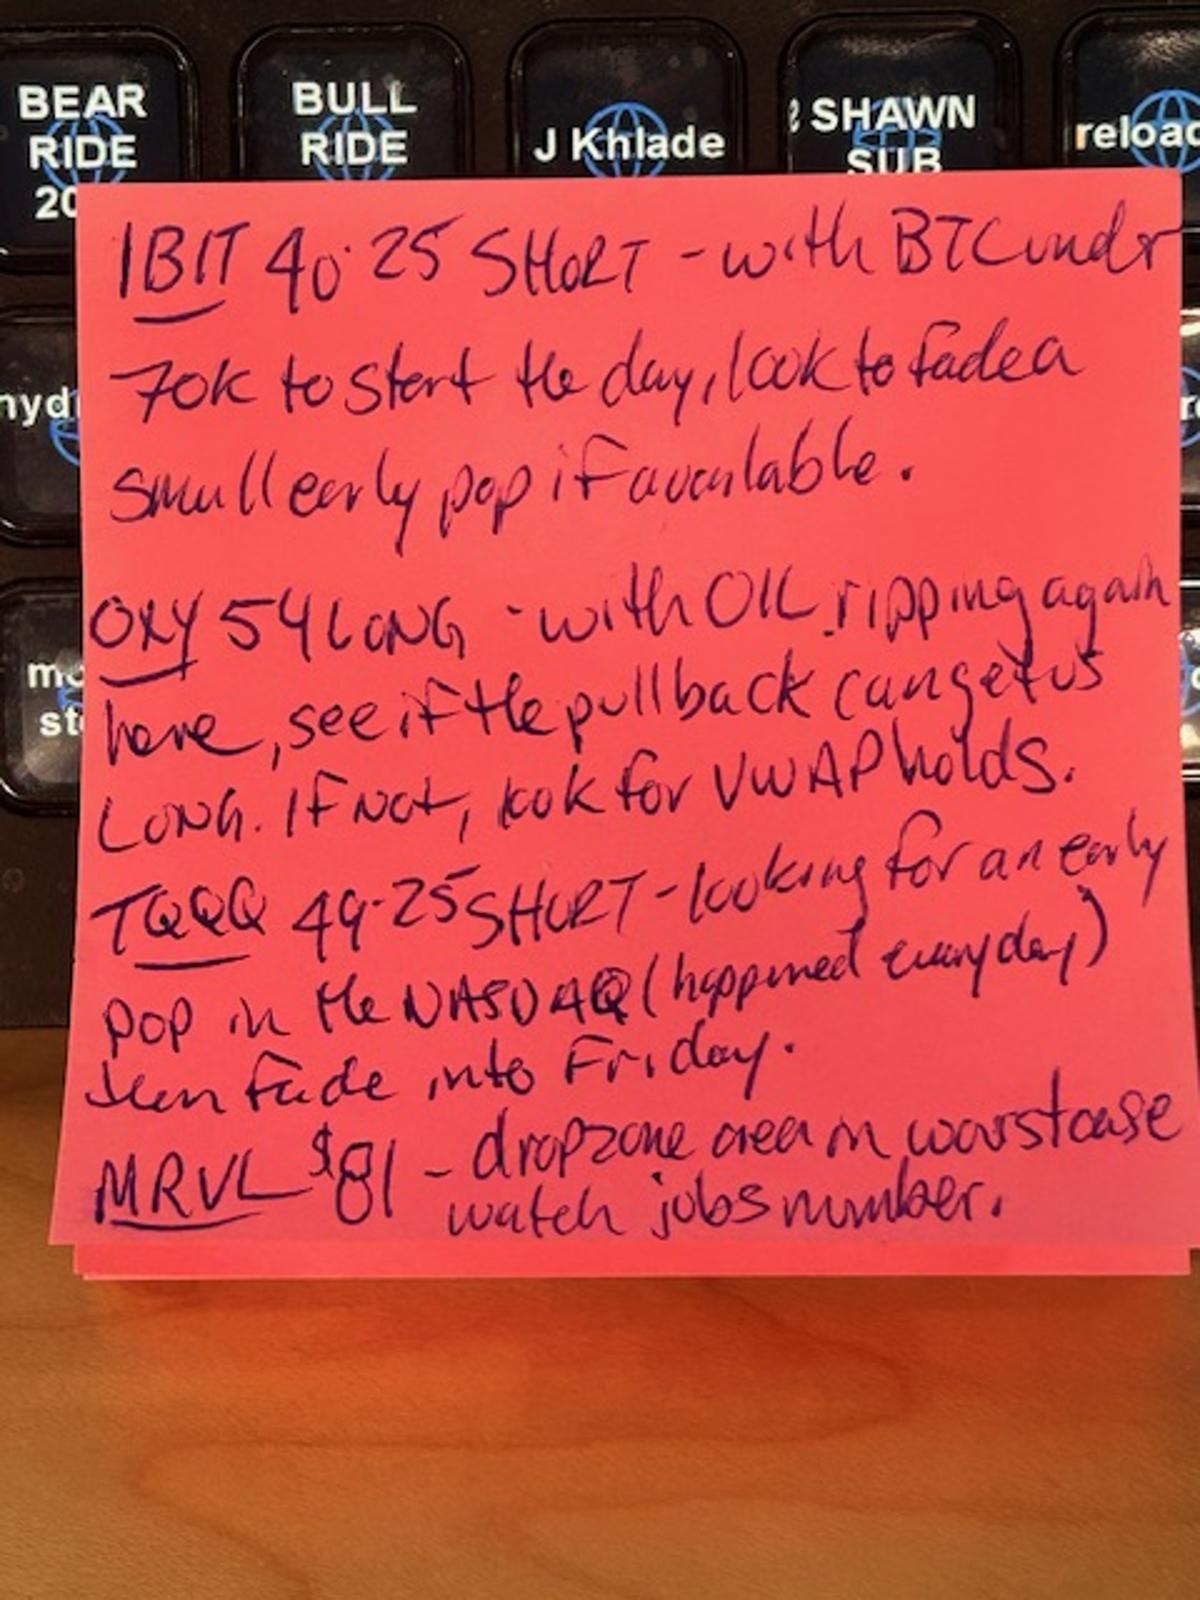 BEAR
RIDE
20
BULL
RIDE
J Khlade
SHAWN
SUB
reload
nyd
mo
st
IBIT 40.25 SHORT - with BTC undr
70K to start the day, look to fade a
small early pop if available.
OXY 54 LONG - with OIL ripping again
here, see if the pullback can get us
LONG. If Not, look for VWAP holds.
TQQQ 49.25 SHORT - looking for an early
pop in the NASDAQ (happened everyday)
then fade into Friday.
MRVL $81 - dropzone area in worst case
watch jobs number.